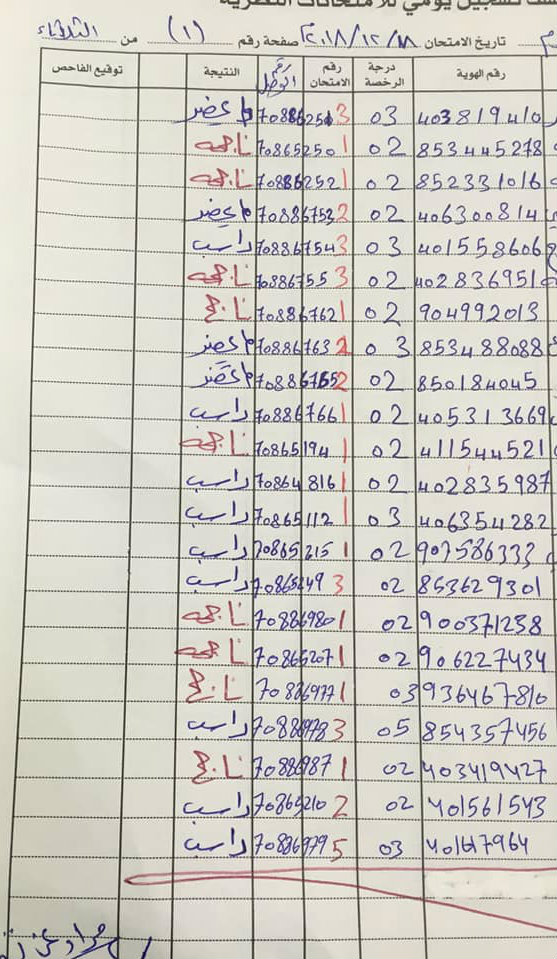 تسجيل يومي للامتحانات النظرية
م تاريخ الامتحان ٢٠١٨/١٢/١٨م صفحة رقم (١) من الثلاثاء
رقم الهوية درجة الرخصة رقم الامتحان رقم الوصل النتيجة توقيع الفاحص
403819410 03 3 7088625 لم يحضر
853445278 02 1 70865250 ناجحه
852331016 02 1 70886252 ناجحه
406300814 02 2 70886753 لم يحضر
401558606 03 3 70886754 راسب
402836951 02 3 70886755 ناجحه
904992013 02 1 70886762 ناجح
853488088 03 2 70886763 لم يحضر
850184045 02 2 70886765 لم يحضر
405313669 02 1 70886766 راسب
411544521 02 1 70865194 ناجحه
402835987 02 1 70864816 راسب
406354282 03 1 70865112 راسب
907586333 02 1 70865215 راسب
853629301 02 3 70865249 راسب
900371238 02 1 70886980 ناجحه
906227434 02 1 70865207 ناجحه
936467810 03 1 70886977 ناجح
854357456 05 3 70886978 راسب
403419427 02 1 70886987 ناجح
401561543 02 2 70865210 راسب
401617964 03 5 70886979 راسب